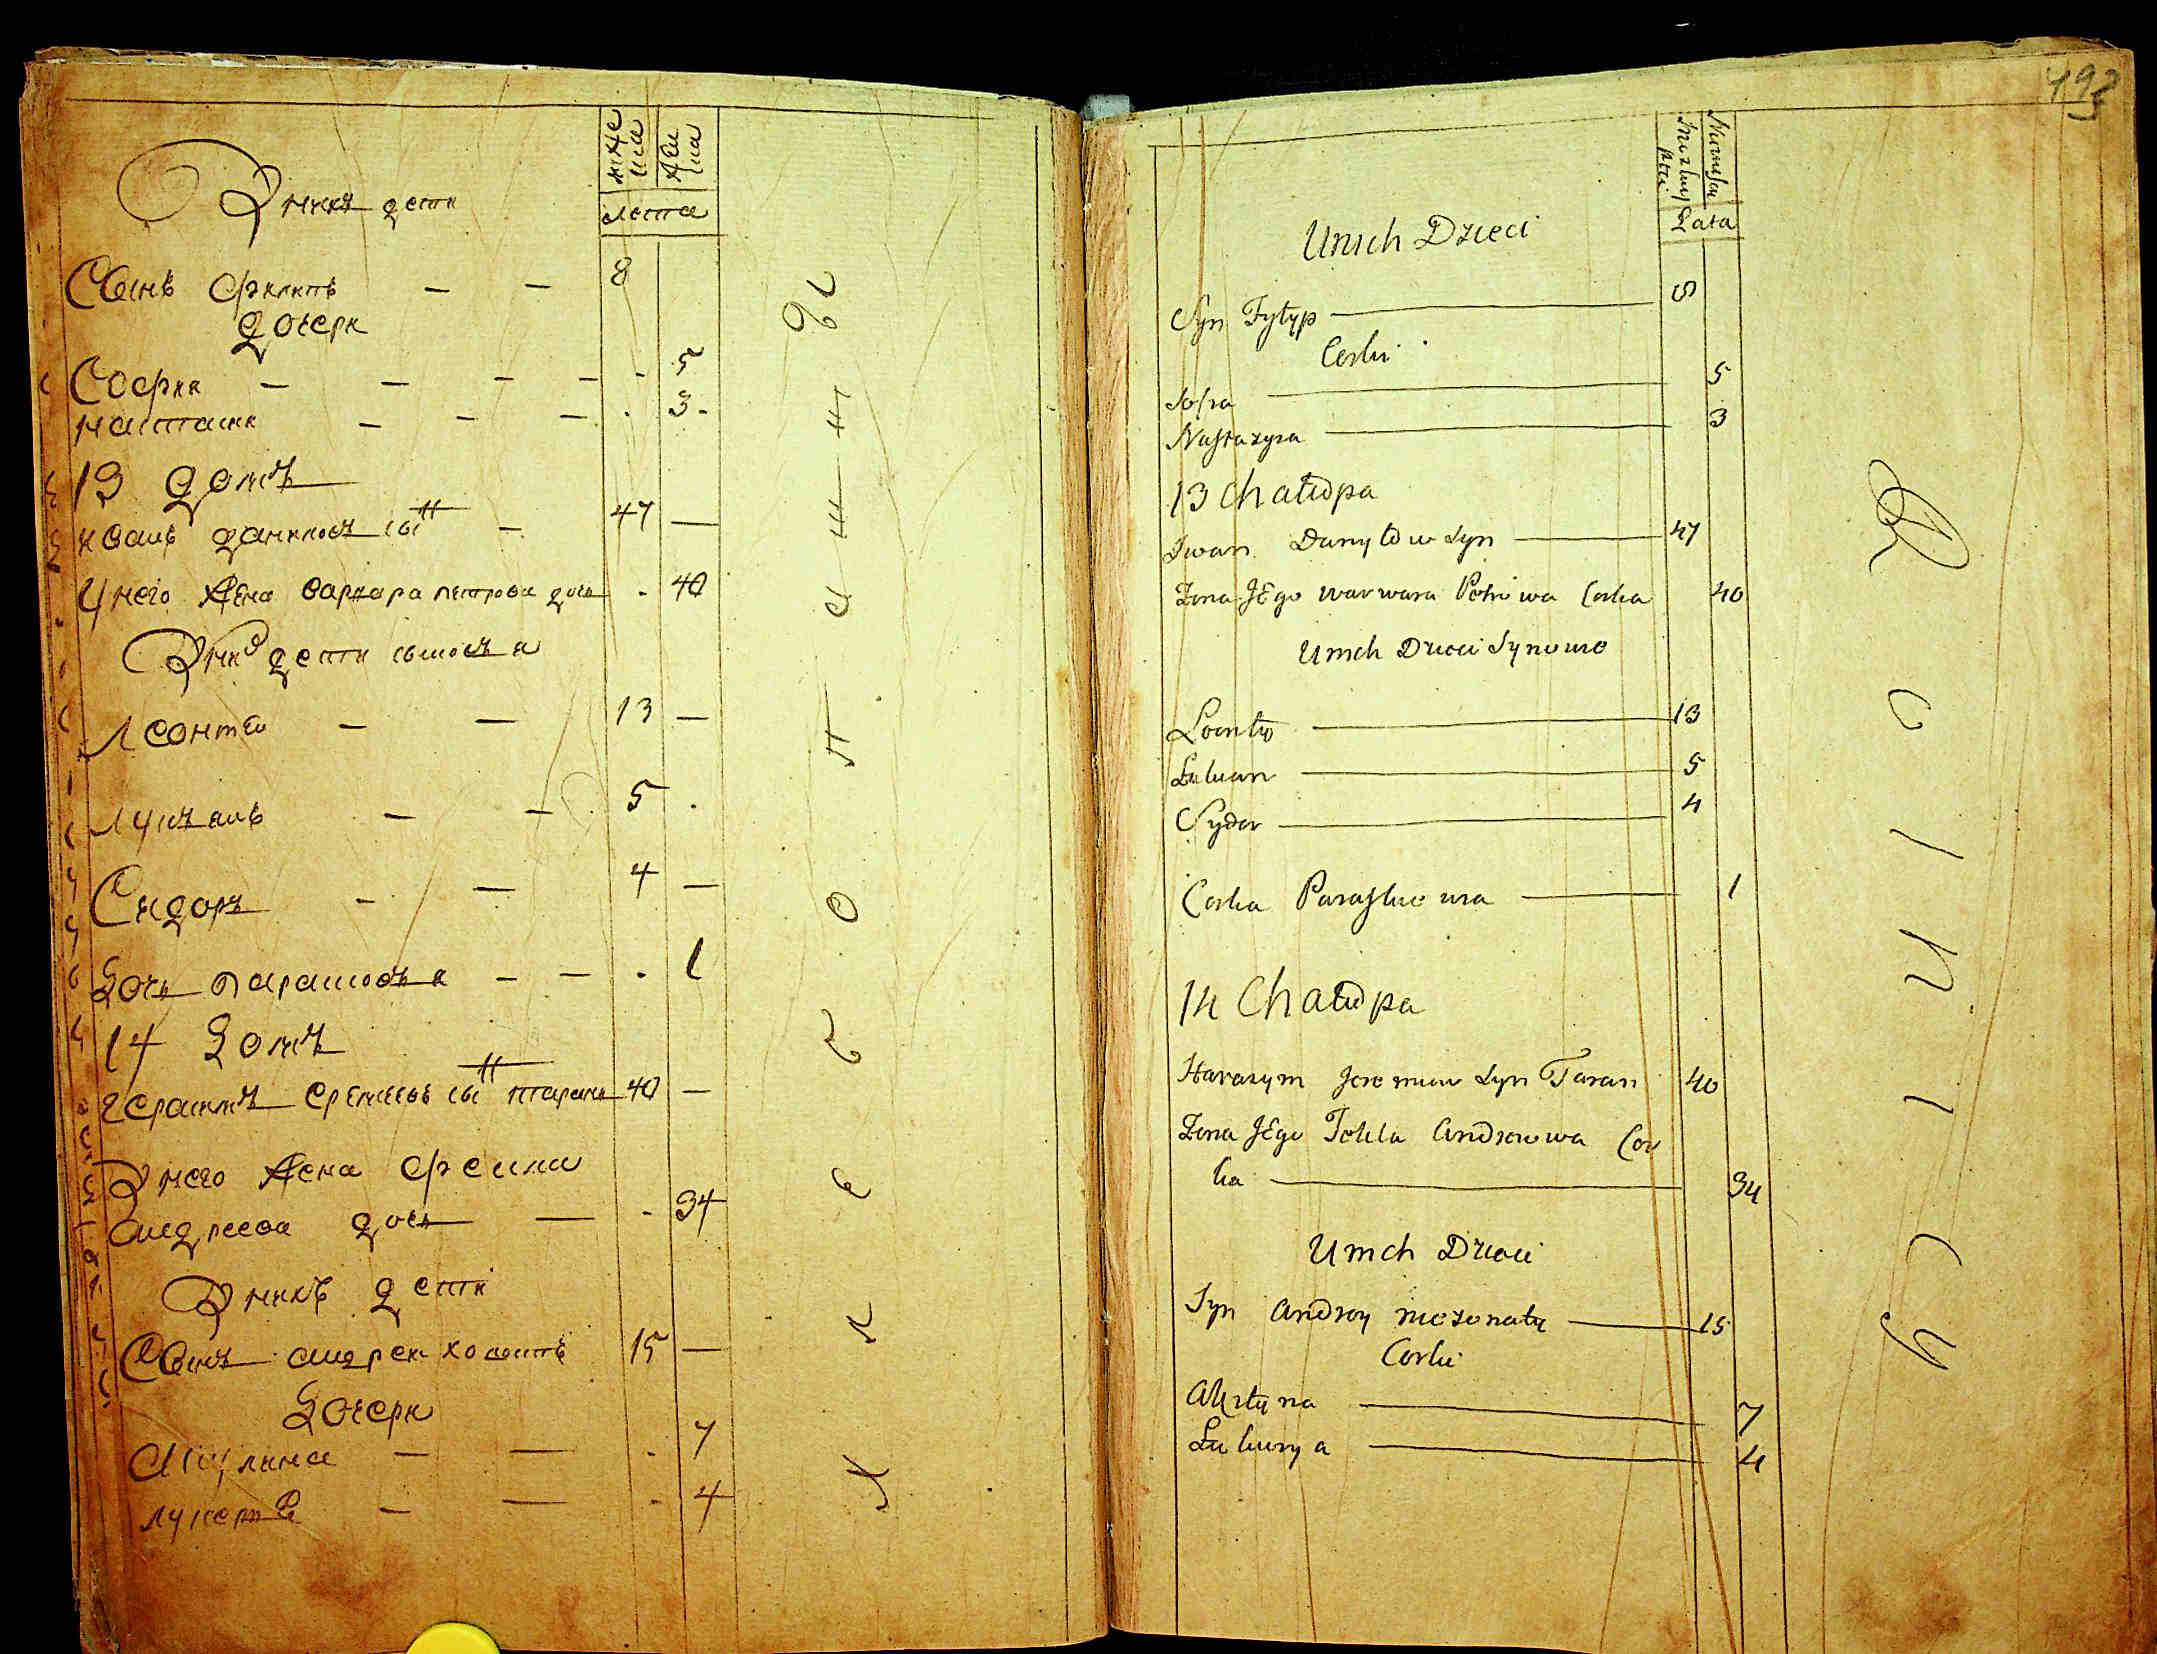 У нихъ дети
лета
Сынъ Филипъ — — 8
дочери
София — — — — 5
настасия — — — 3
13 домъ
иванъ даниловъ сынъ — 47 —
У него жена варвара петрова дочь 40
У них дети сыновъя
Леонтей — — 13 —
Лукъянъ — — 5
Сидоръ — — 4 —
Дочь Парасковъя — — 1
14 Домъ
герасимъ еремеевъ сынъ таранъ 40 —
У него жена фекла
андреева дочь — 34
У нихъ дети
Сынъ андреи холостъ 15 —
Дочери
Акулина — — 7
лукеря — — 4
Х л е б о п а ш ц ы
493
Męzkiey
Płci
Lata
Unich Dzieci
Syn Fyłyp — 8
Corki
Sofia — 5
Nastazyia — 3
13 Chałupa
Iwan Danyłow Syn — 47
Zona JEgo warwara Petrowa Corka 40
Unich Dzieci Synowie
Leonty — 13
Lukian — 5
Sydor — 4
Corka Paraskiewia — 1
14 Chałupa
Harasym Jeremiew Syn Taran 40
Zona JEgo Tekla Andreiowa Cor
ka — 34
Unich Dzieci
Syn Andrey niezonaty — 15
Corki
Akulyna — 7
Lukierya — 4
R o l n i c y